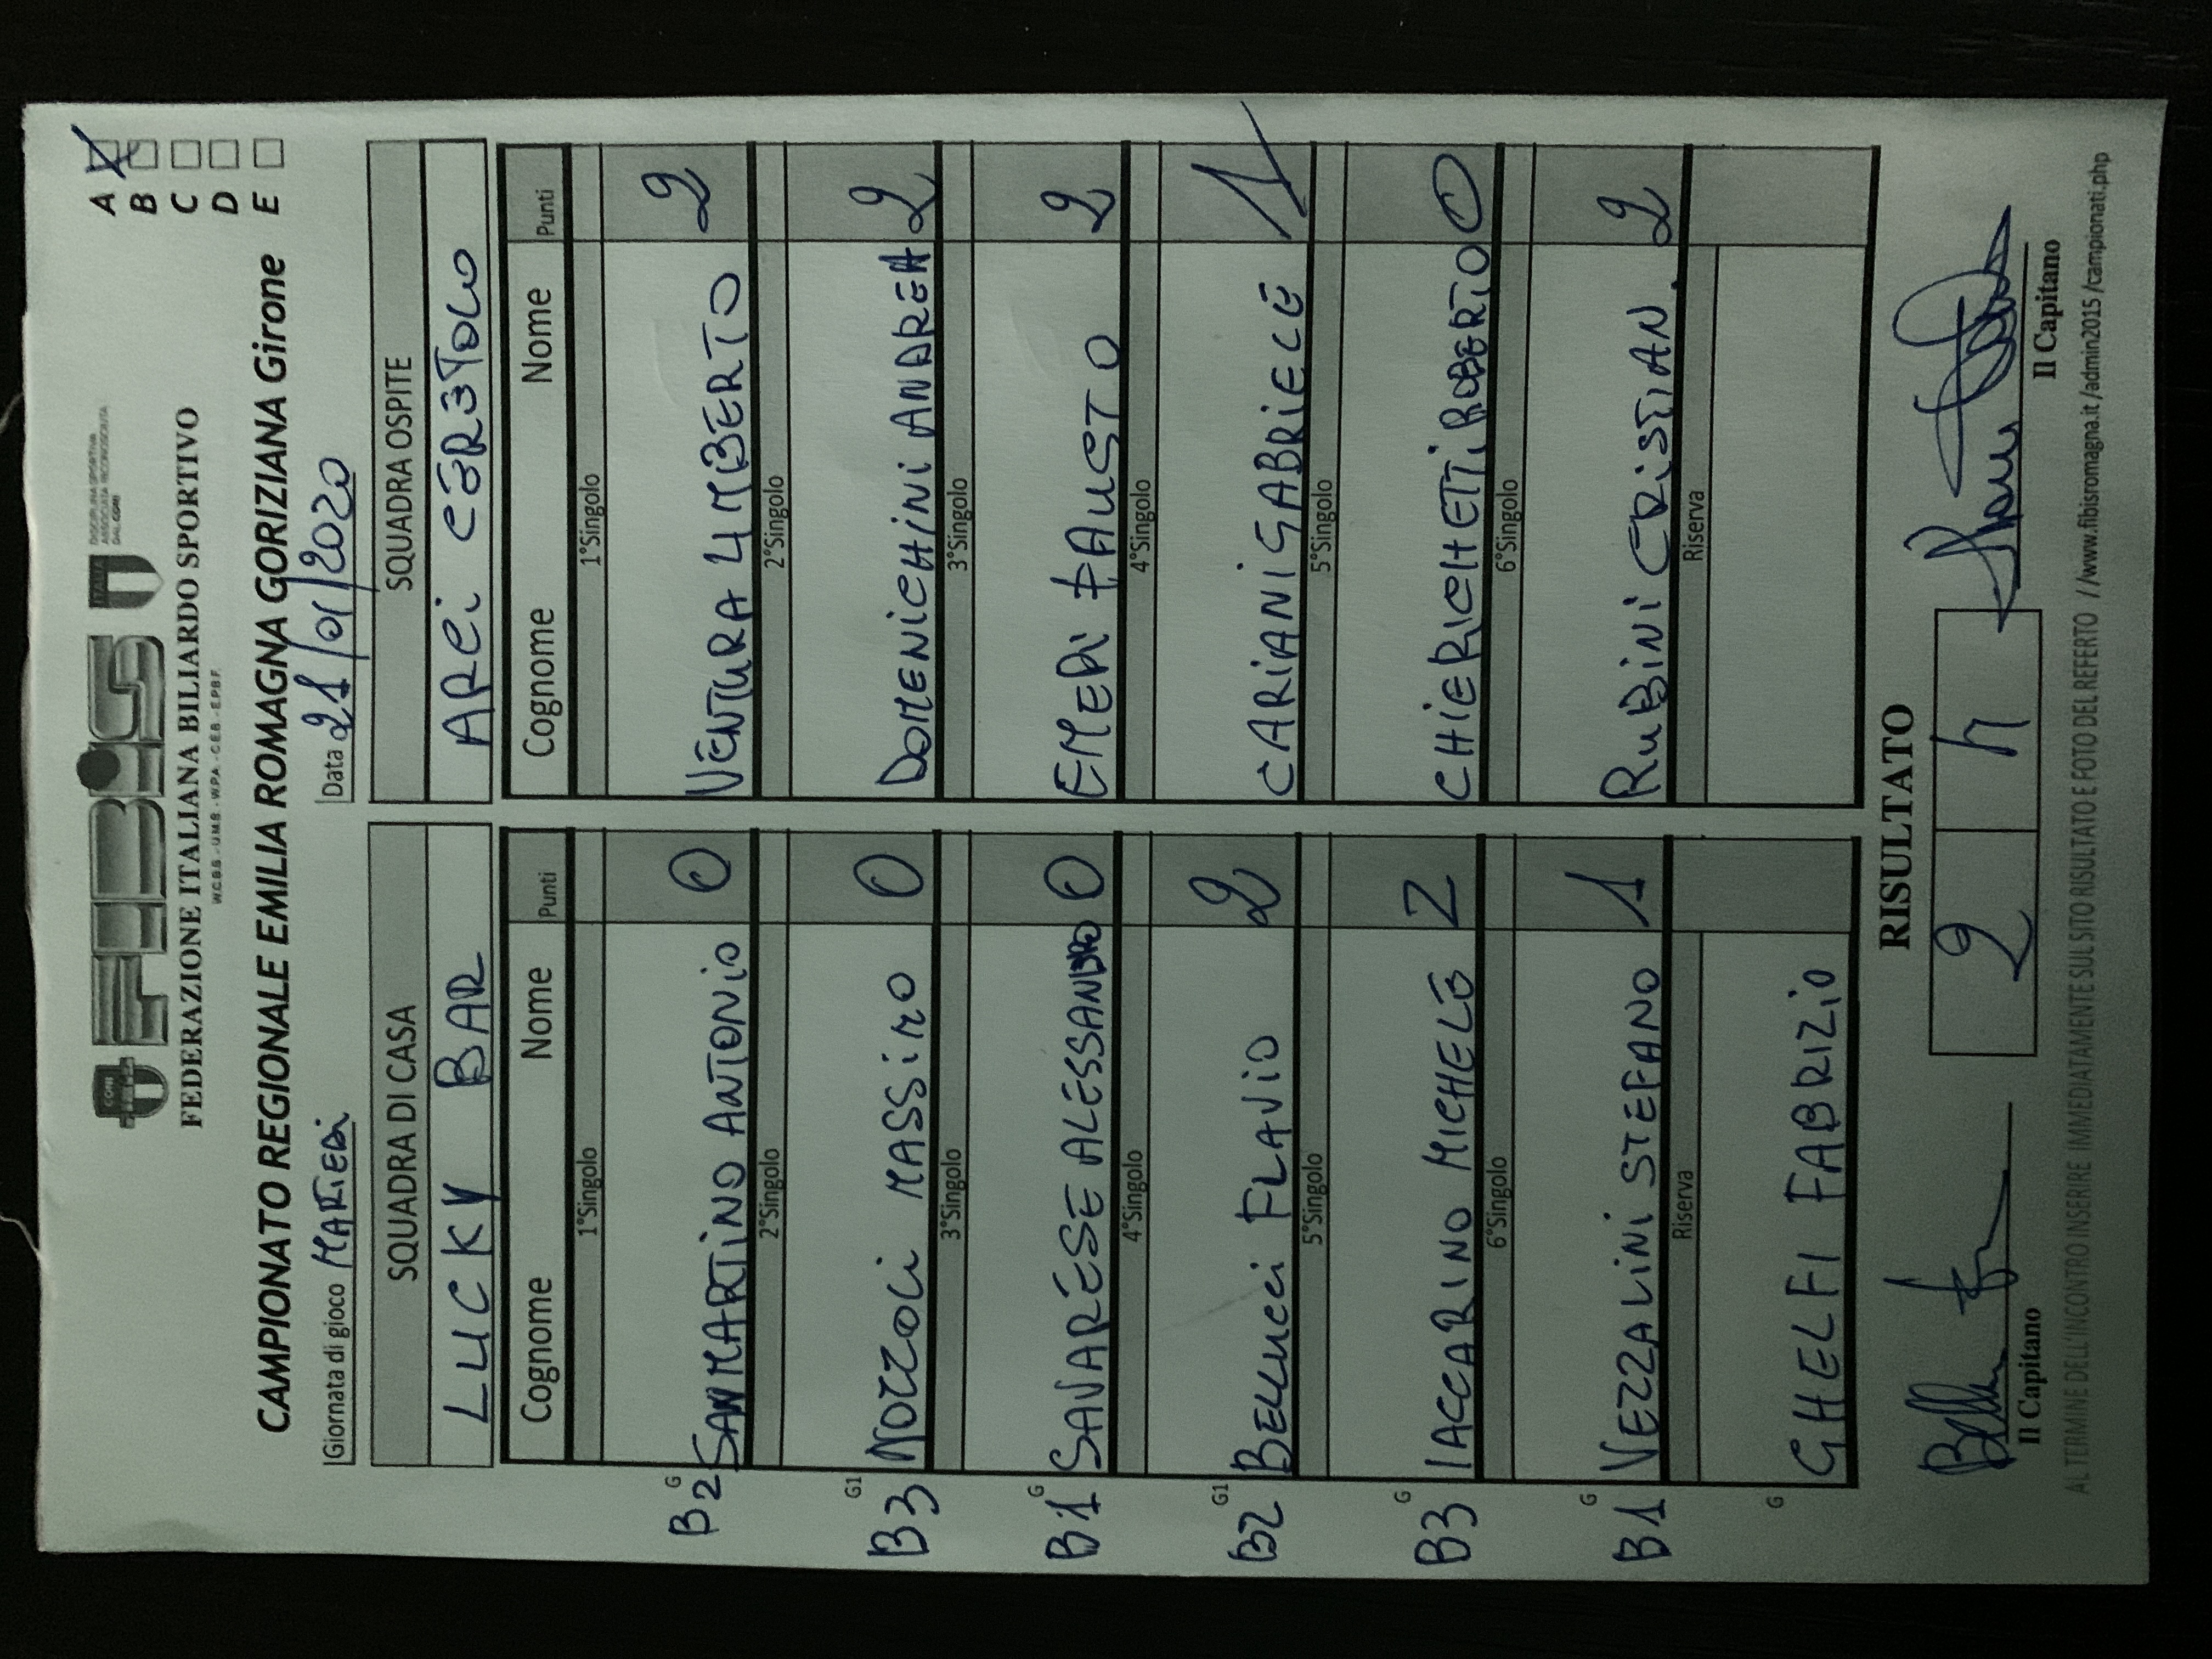 FIBiS
CONI
ITALIA
DISCIPLINA SPORTIVA
ASSOCIATA RICONOSCIUTA
DAL CONI
FEDERAZIONE ITALIANA BILIARDO SPORTIVO
W.C.B.S. - U.M.B. - W.P.A. - C.E.B. - E.P.B.F.
CAMPIONATO REGIONALE EMILIA ROMAGNA GORIZIANA Girone
A
B
C
D
E
Giornata di gioco MARTEDì Data 21/01/2020
SQUADRA DI CASA SQUADRA OSPITE
LUCKY BAR ARCI CERETOLO
Cognome Nome Punti Cognome Nome Punti
1°Singolo 1°Singolo
B2 G SAMMARTINO ANTONIO 0 VENTURA UMBERTO 2
2°Singolo 2°Singolo
B3 G1 NOZZOLI MASSIMO 0 DOMENICHINI ANDREA 2
3°Singolo 3°Singolo
B1 G SAVARESE ALESSANDRO 0 EMERI FAUSTO 2
4°Singolo 4°Singolo
B2 G1 BELLUCCI FLAVIO 2 CARIANI GABRIELE 1
5°Singolo 5°Singolo
B3 G IACCARINO MICHELE 2 CHIERICHETTI ROBERTO 0
6°Singolo 6°Singolo
B1 G VEZZALINI STEFANO 1 RUBINI CRISTIAN. 2
Riserva Riserva
G GHELFI FABRIZIO
RISULTATO
2 4
Il Capitano Il Capitano
AL TERMINE DELL'INCONTRO INSERIRE IMMEDIATAMENTE SUL SITO RISULTATO E FOTO DEL REFERTO //www.fibisromagna.it/admin2015/campionati.php